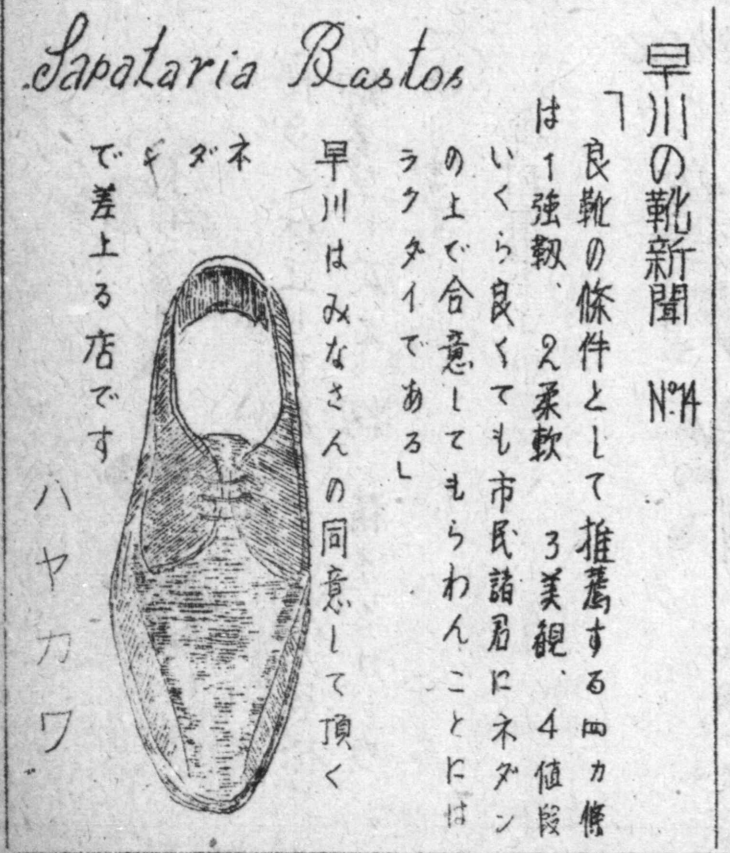 Sapataria Bastos
早川の靴新聞 No.14
「良靴の條件として推薦する四カ條
は1強靱、2柔軟 3美観、4値段
いくら良くても市民諸君にネダン
の上で合意してもらわんことには
ラクダイである」
早川はみなさんの同意して頂く
ネダン
で差上る店です
ハヤカワ